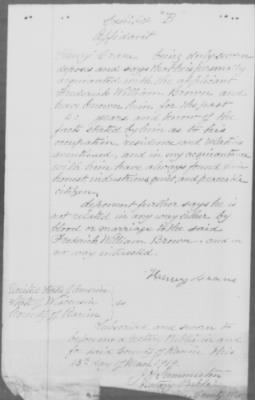 Exhibit "B"
Affidavit
Henry Crane being duly sworn
deposes and says that he is personally
acquainted with the applicant
Frederick William Brown and
have known him for the past
years and know of the
facts stated by him as to his
occupation, residence and relatives
mentioned, and in my acquaintance
with him have always found him
honest industrious quiet, and peaceable
citizen.
deponent further says he is
not related in any way either by
blood or marriage to the said
Frederick William Brown and in
no way interested.
Henry Crane
United States of America
State of Wisconsin ss
County of Racine
Subscribed and sworn to
before me a Notary Public in and
for said County of Racine this
13th day of March
Notary Public
County